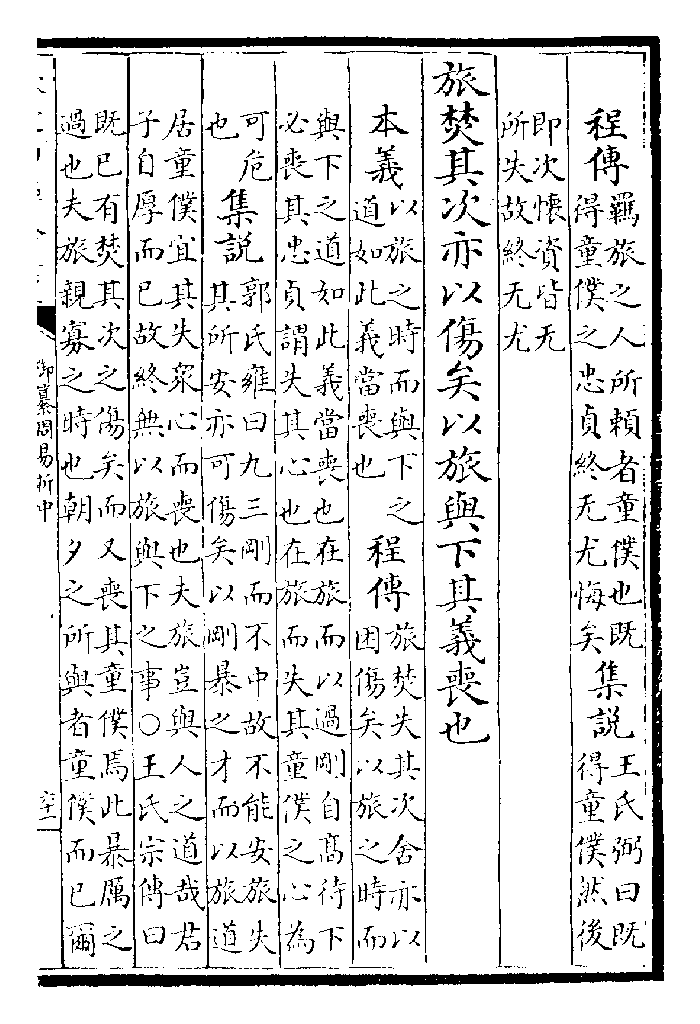 程傳羈旅之人所賴者童僕也既得童僕之忠貞終无尤悔矣集說王氏弼曰既得童僕然後
即次懷資皆无
所失故終无尤
旅焚其次亦以傷矣以旅與下其義喪也
本義以旅之時而與下之道如此義當喪也程傳旅焚失其次舍亦以困傷矣以旅之時而
與下之道如此義當喪也在旅而以過剛自高待下
必喪其忠貞謂失其心也在旅而失其童僕之心為
可危也集說郭氏雍曰九三剛而不中故不能安旅失其所安亦可傷矣以剛暴之才而以旅道
居童僕宜其失眾心而喪也夫旅豈與人之道哉君
子自厚而已故終無以旅與下之事○王氏宗傳曰
既已有焚其次之傷矣而又喪其童僕焉此暴厲之
過也夫旅親寡之時也朝夕之所與者童僕而已爾
御纂周易折中